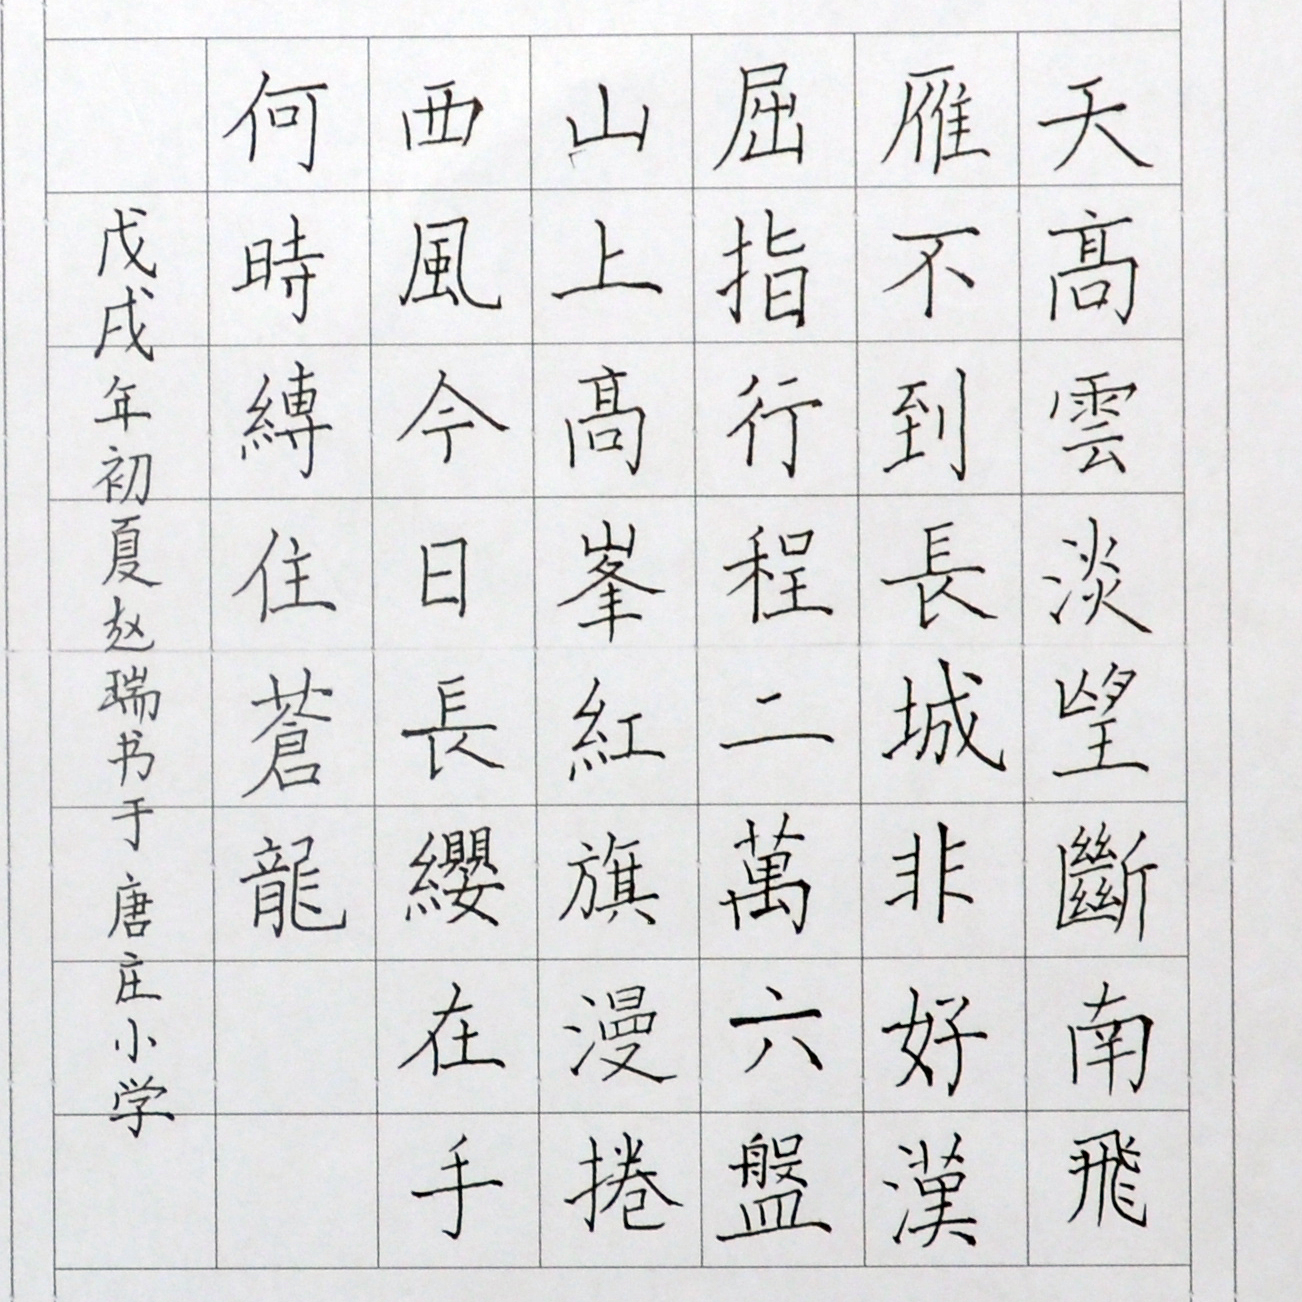 天高雲淡望斷南飛
雁不到長城非好漢
屈指行程二萬六盤
山上高峯紅旗漫捲
西風今日長纓在手
何時縛住蒼龍
戊戌年初夏赵瑞书于唐庄小学